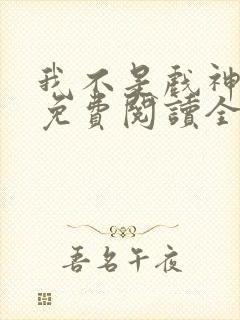 我不是戲神
免費閱讀全
吾名午夜